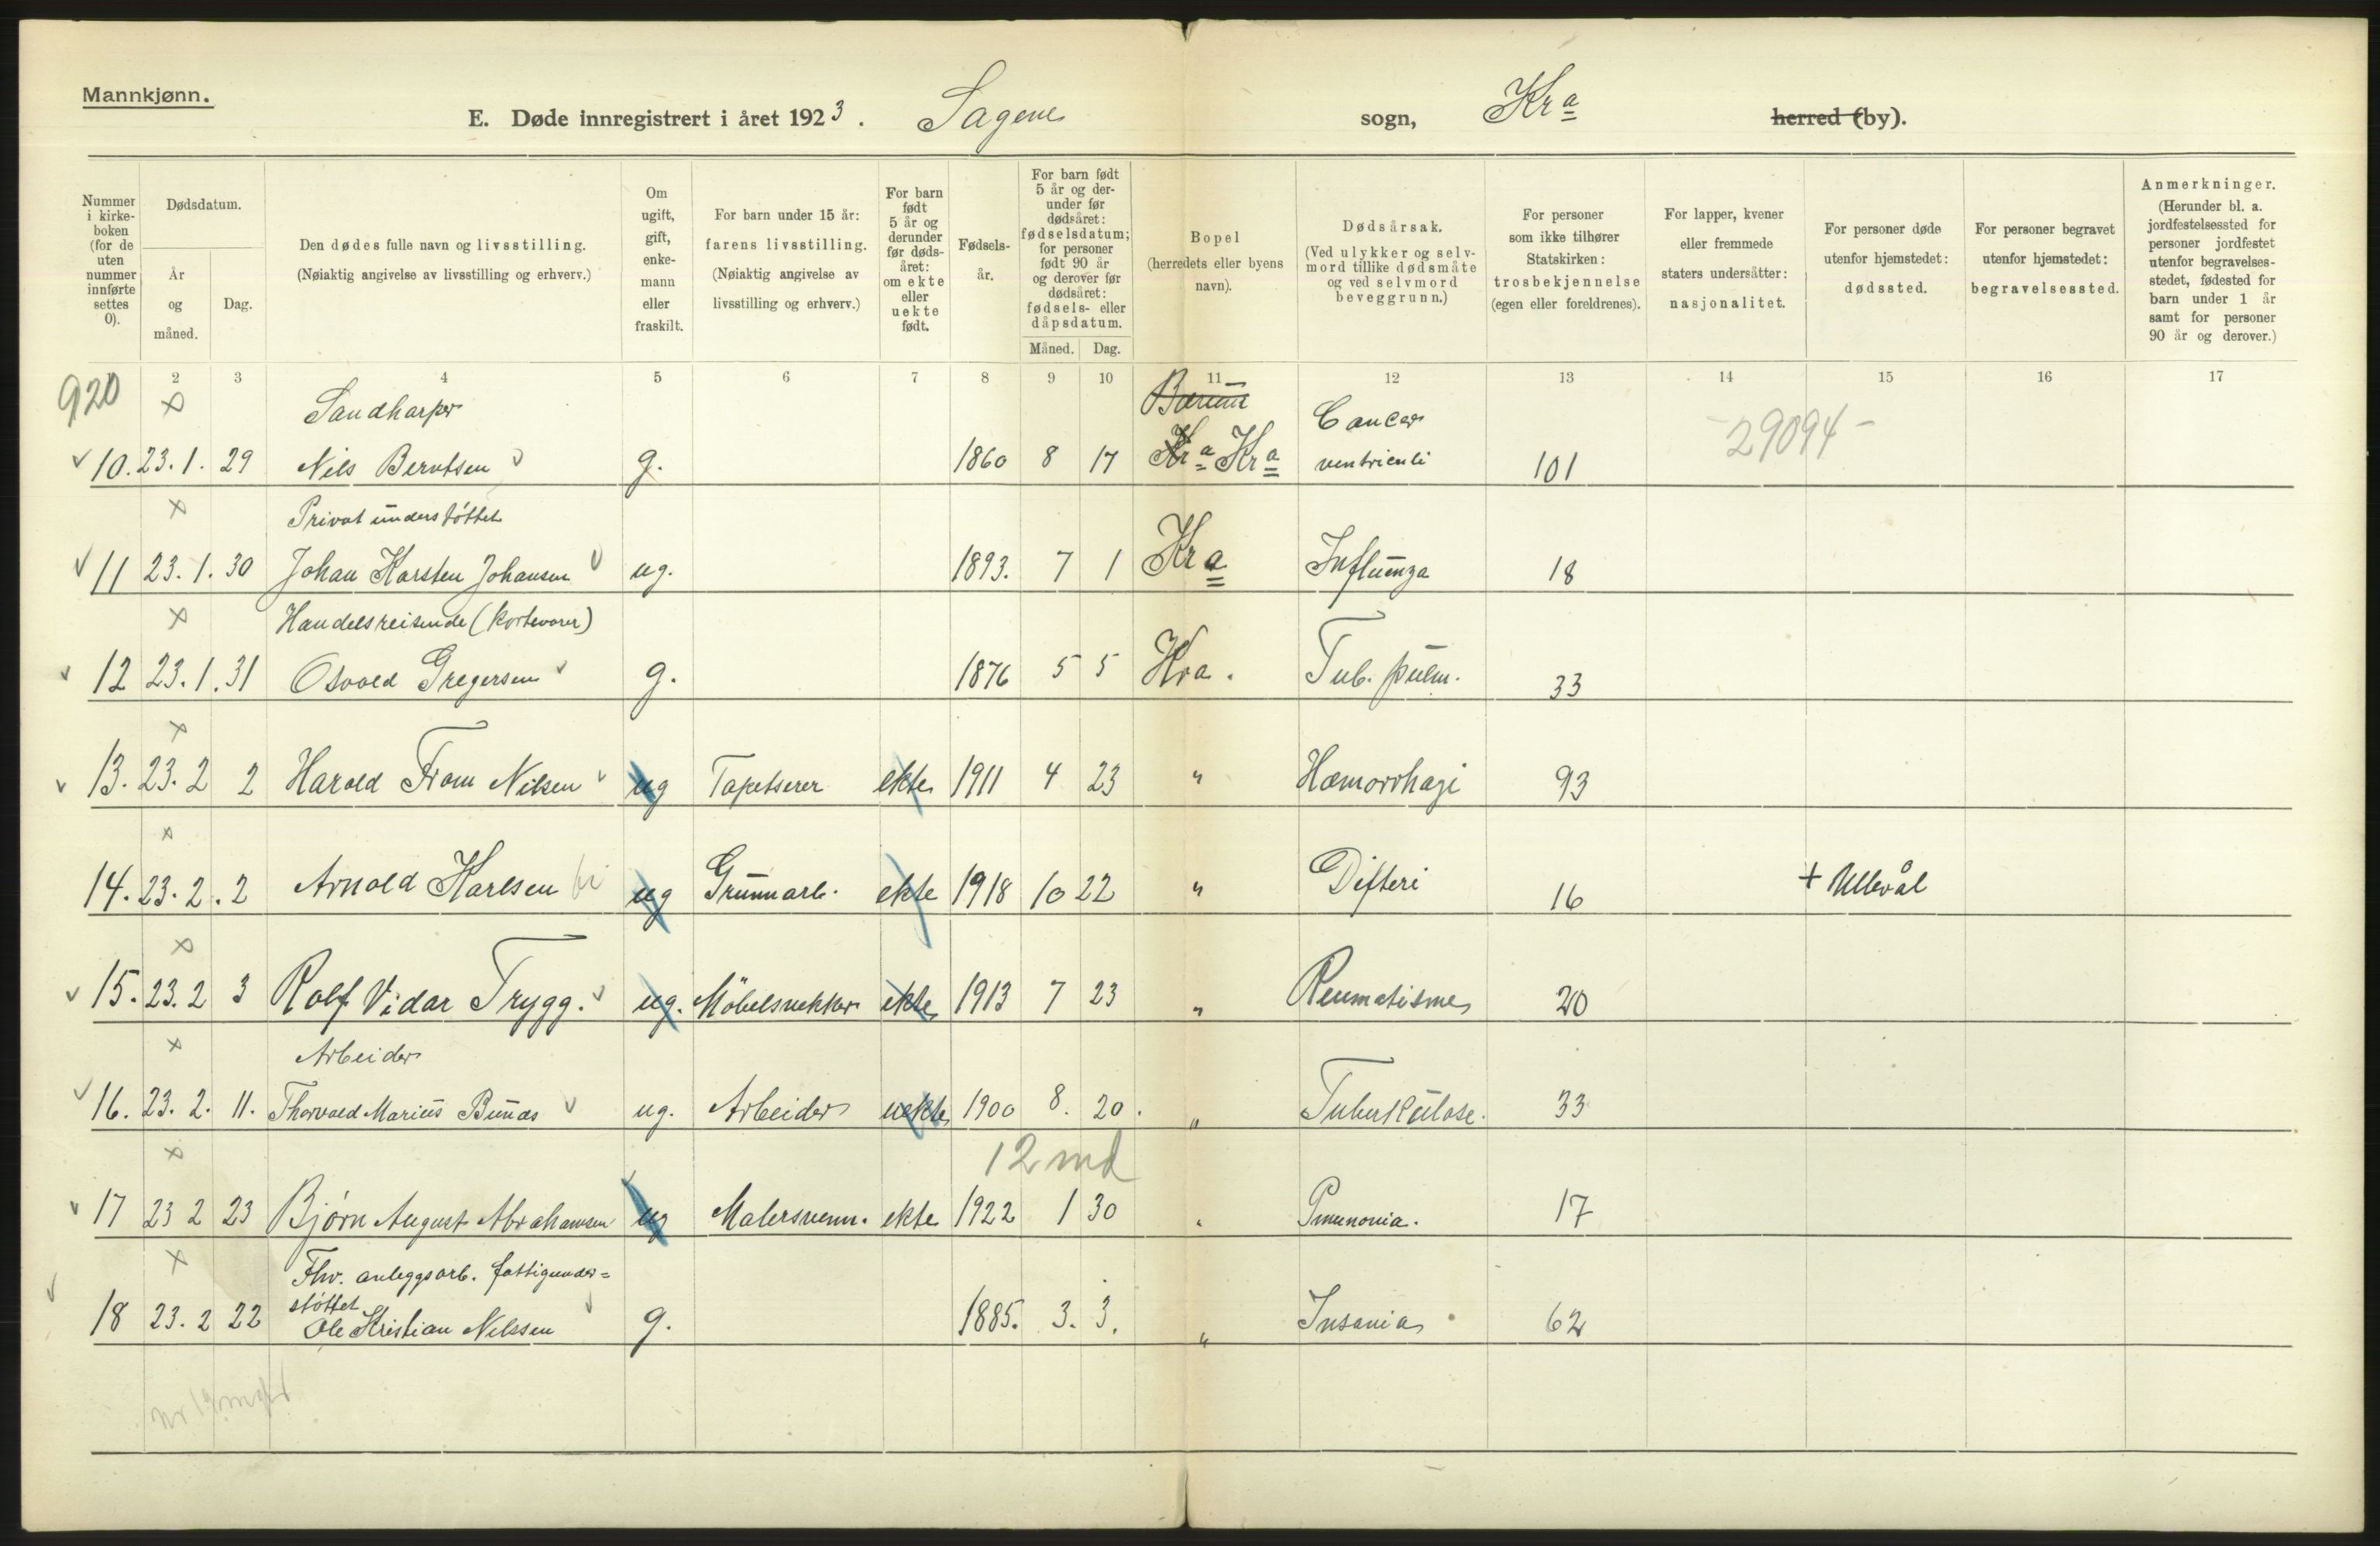 Mannkjønn.
E. Døde innregistrert i året 1923. Sagene sogn, Kra herred (by).
Nummer i kirke-boken (for de uten nummer innførte settes 0).
Dødsdatum.
År og måned.
Dag.
Den dødes fulle navn og livsstilling.
(Nøiaktig angivelse av livsstilling og erhverv.)
Om ugift, gift, enke-mann eller fraskilt.
For barn under 15 år: farens livsstilling.
(Nøiaktig angivelse av livsstilling og erhverv.)
For barn født 5 år og derunder før døds-året: om ekte eller uekte født.
Fødsels-år.
For barn født 5 år og der-under før dødsåret: fødselsdatum; for personer født 90 år og derover før dødsåret: fødsels- eller dåpsdatum.
Måned. Dag.
Bopel (herredets eller byens navn).
Dødsårsak.
(Ved ulykker og selv-mord tillike dødsmåte og ved selvmord beveggrunn.)
For personer som ikke tilhører Statskirken: trosbekjennelse (egen eller foreldrenes).
For lapper, kvener eller fremmede staters undersåtter: nasjonalitet.
For personer døde utenfor hjemstedet: dødssted.
For personer begravet utenfor hjemstedet: begravelsessted.
Anmerkninger.
(Herunder bl. a. jordfestelsessted for personer jordfestet utenfor begravelses-stedet, fødested for barn under 1 år samt for personer 90 år og derover.)
2 3 4 5 6 7 8 9 10 11 12 13 14 15 16 17
920 × Sandharper Bærum Cancer 29094
10. 23.1. 29 Nils Berntsen g. 1860 8 17 Kra Kra ventriculi 101
× Privat understøttet
11 23.1. 30 Johan Karsten Johansen ug. 1893. 7 1 Kra Influenza 18
× Handelsreisende (kortevarer)
12 23.1. 31 Osvald Gregersen g. 1876 5 5 Kra. Tub. pulm. 33
×
13. 23. 2 2 Harald From Nilsen ug Tapetserer ekte 1911 4 23 " Hæmorrhagi 93
×
14. 23. 2. 2 Arnold Karlsen ug Grunnarb. ekte 1918 10 22 " Difteri 16 + Ullevål
×
15. 23. 2 3 Rolf Vidar Trygg. ug. Möbelsnekker ekte 1913 7 23 " Reumatisme 20
× Arbeider
16. 23. 2. 11. Thorvald Marius Bunæs ug. Arbeider uekte 1900 8. 20. " Tuberkulose. 33
× 12 md
17 23 2 23 Bjørn August Abrahamsen ug Malersvenn. ekte 1922 1 30 " Pneunonia. 17
× Fhv. anleggsarb. fattigunder=
støttet
18 23. 2 22 Ole Kristian Nilssen g. 1885. 3. 3. " Insania 62